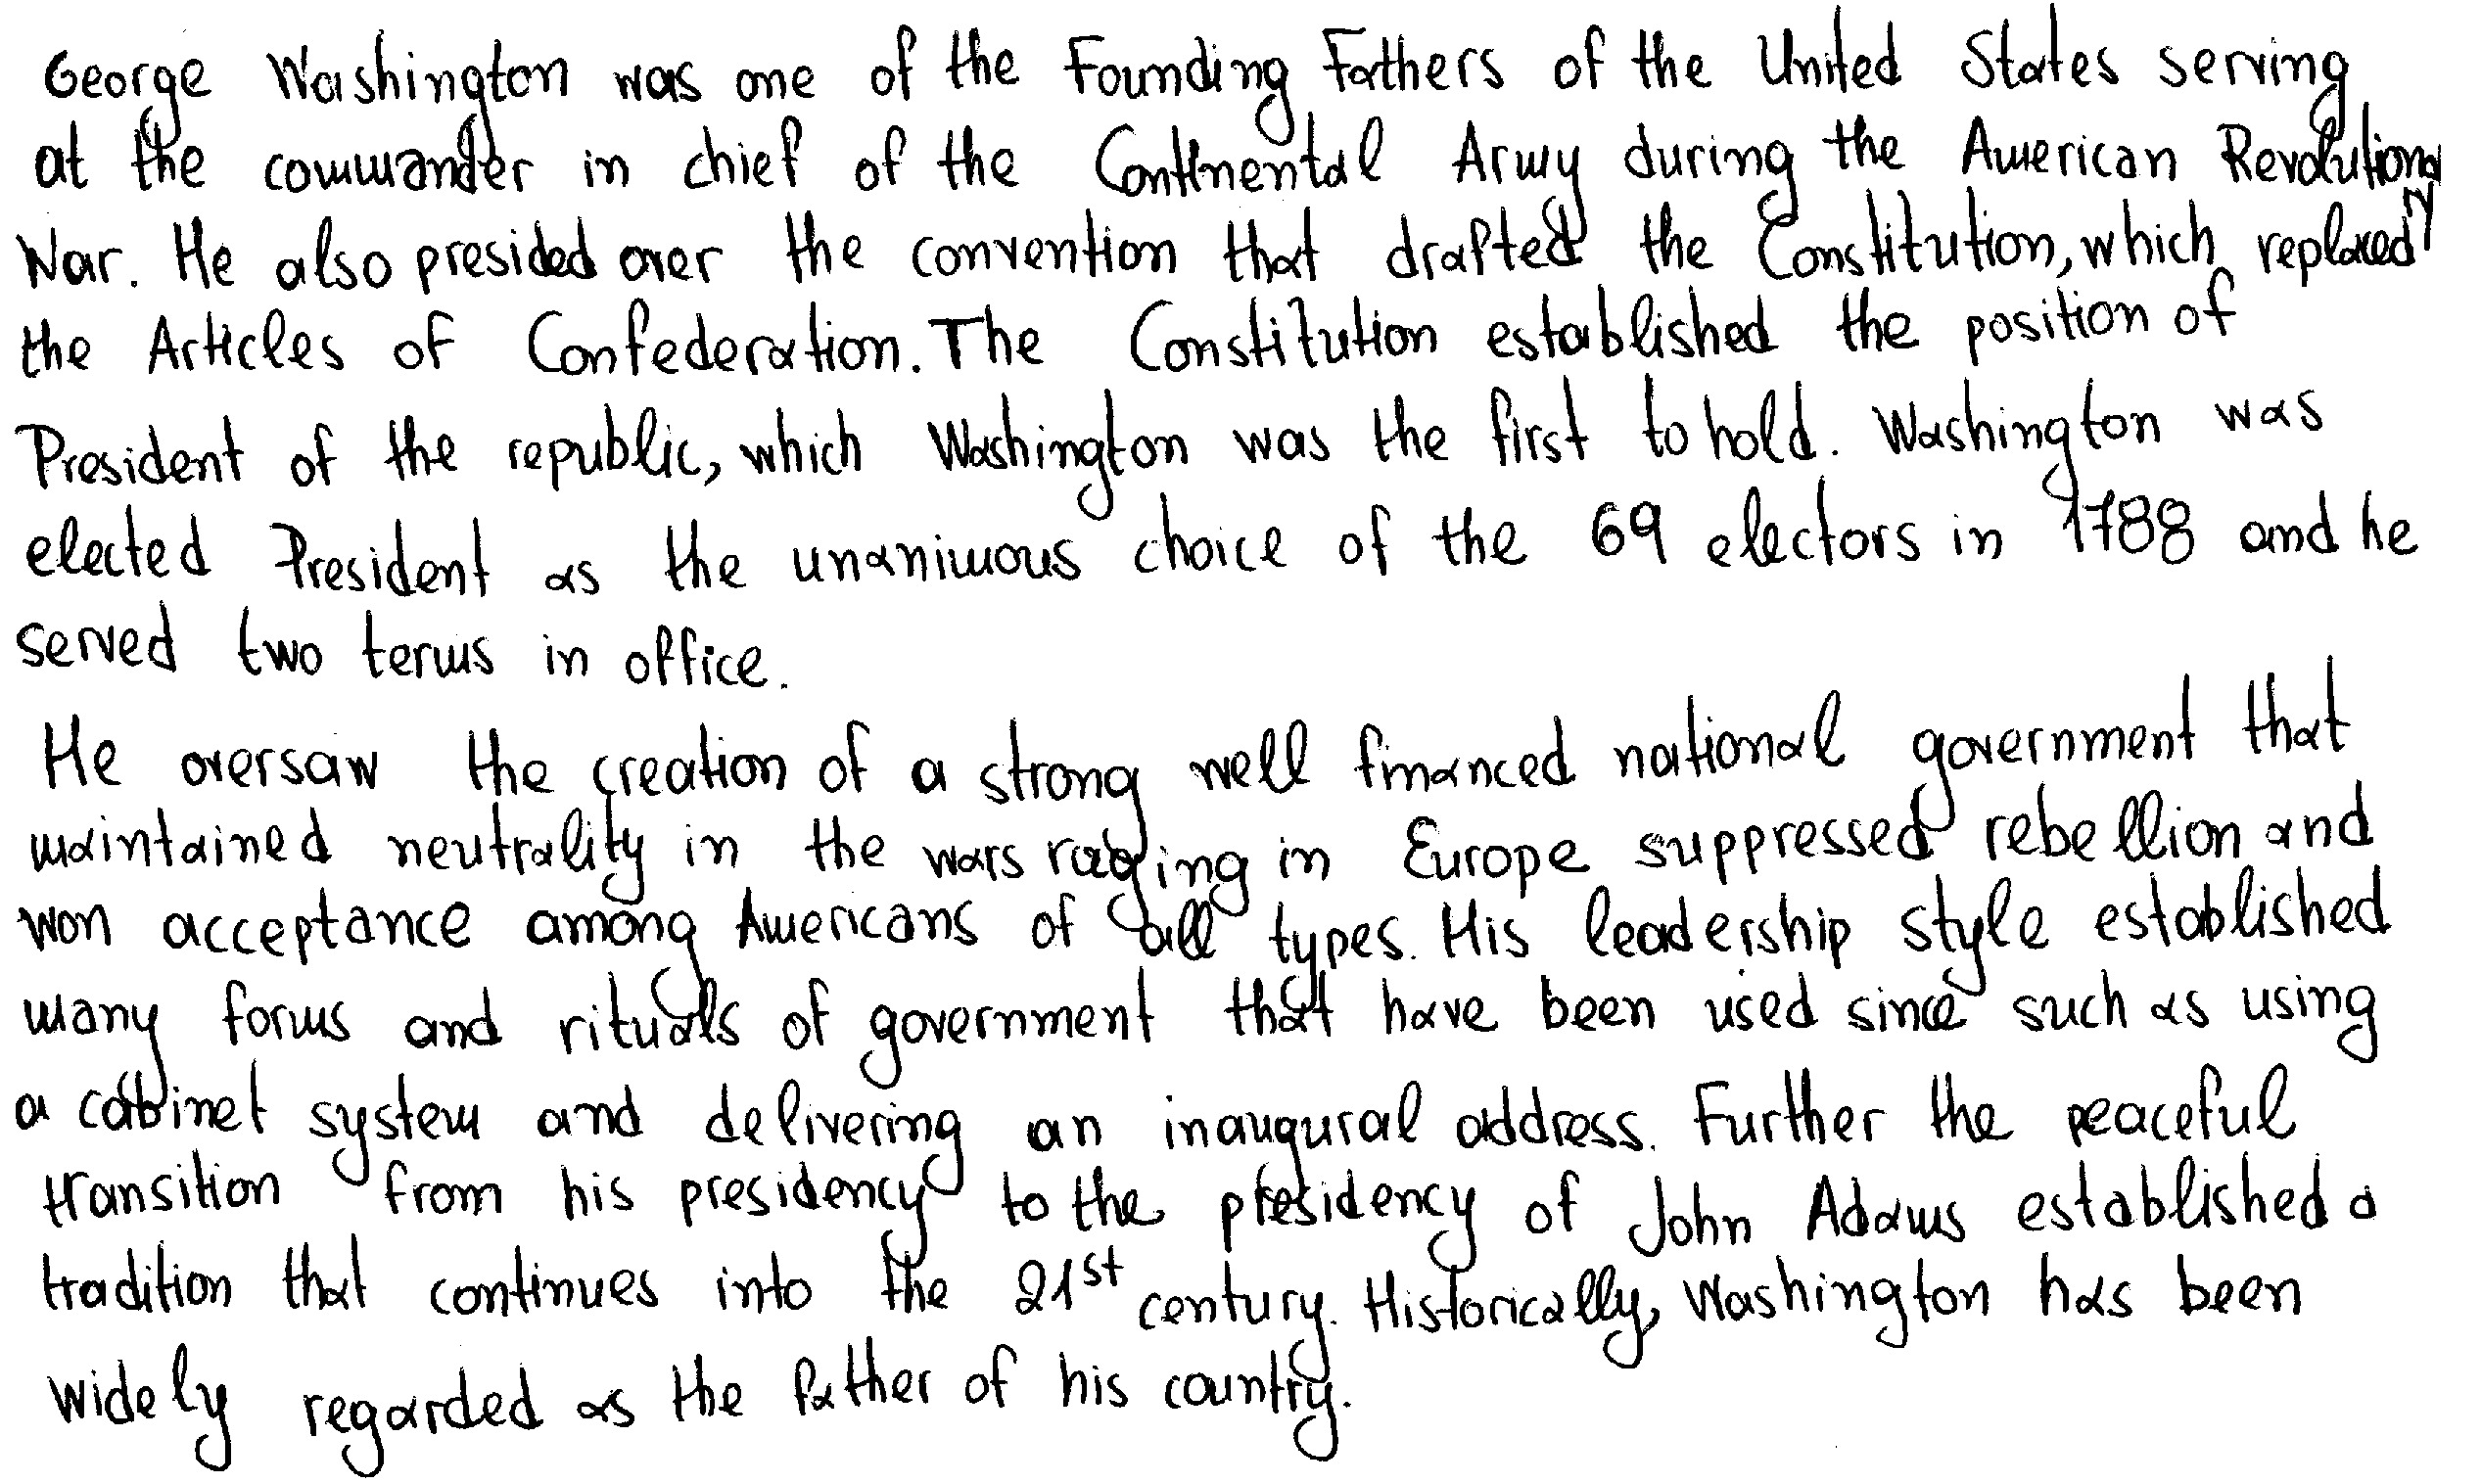 George Washington was one of the Founding Fathers of the United States serving
at the commander in chief of the Continental Army during the American Revolutionary
War. He also presided over the convention that drafted the Constitution, which replaced
the Articles of Confederation. The Constitution established the position of
President of the republic, which Washington was the first to hold. Washington was
elected President as the unanimous choice of the 69 electors in 1788 and he
served two terms in office.
He oversaw the creation of a strong well financed national government that
maintained neutrality in the wars raging in Europe suppressed rebellion and
won acceptance among Americans of all types. His leadership style established
many forms and rituals of government that have been used since such as using
a cabinet system and delivering an inaugural address. Further the peaceful
transition from his presidency to the presidency of John Adams established a
tradition that continues into the 21st century. Historically, Washington has been
widely regarded as the father of his country.